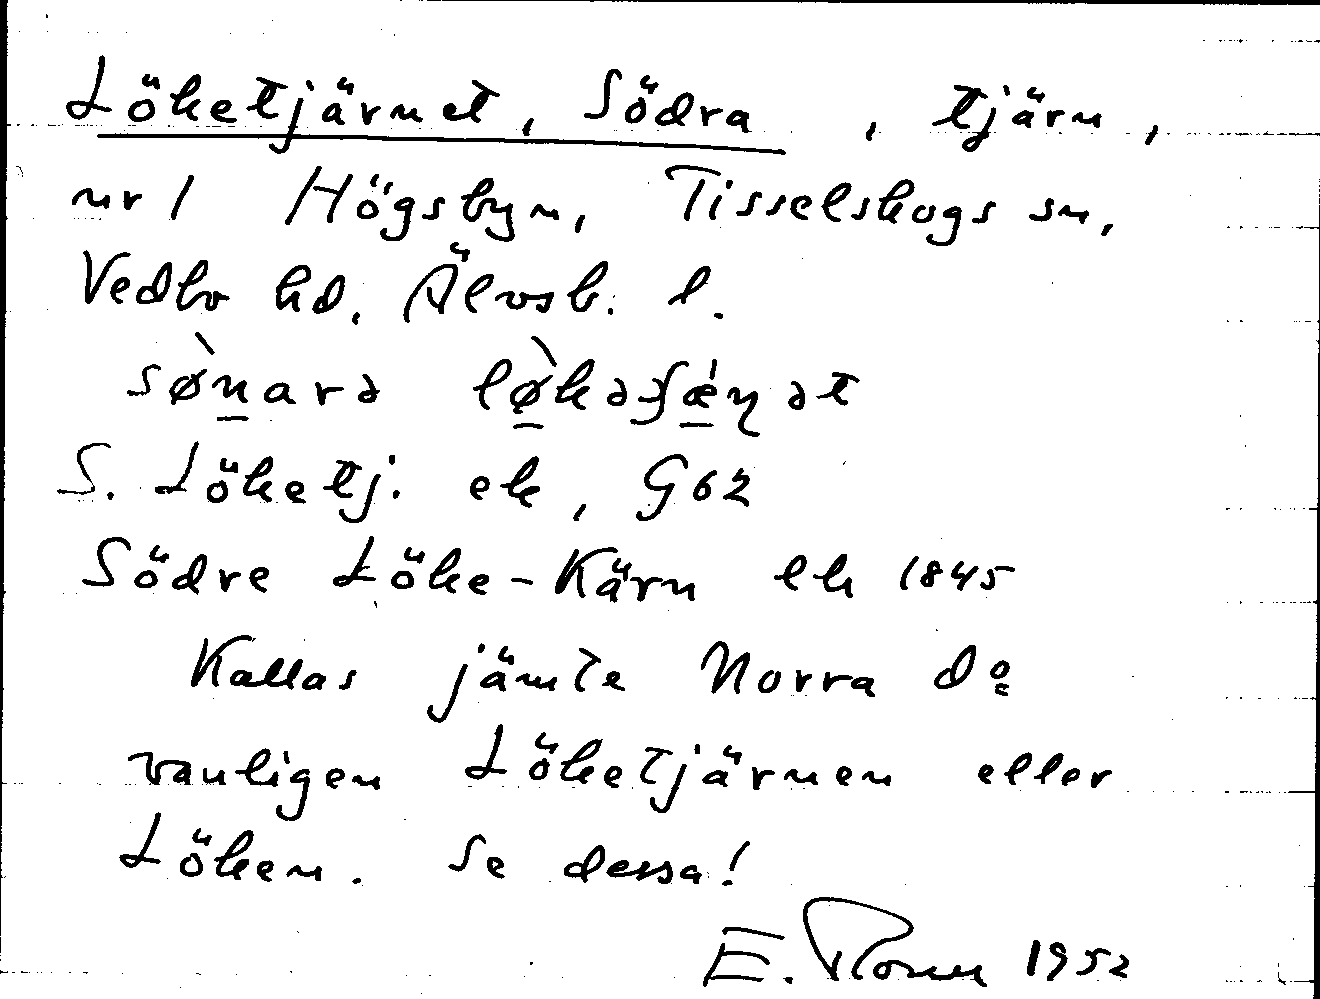 Löketjärnet, Södra , tjärn,
nr 1 Högsbyn, Tisselskogs sn,
Vedbo hd, Älvsb. l.
sø̀narə
S. Löketj. ek, G62
Södre Löke-Kärn lk 1845
Kallas jämte Norra do
vanligen Löketjärnen eller
Löken. Se dessa!
E. 1952